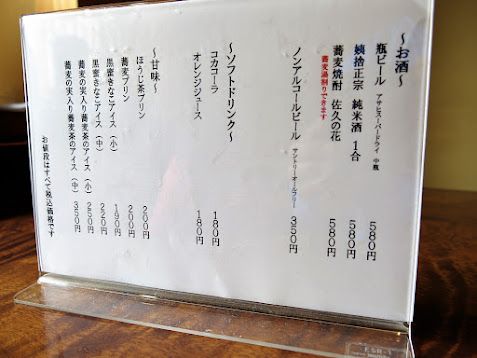 〜お酒〜
瓶ビール アサヒスーパードライ 中瓶 580円
姨捨正宗 純米酒 1合 580円
蕎麦焼酎 佐久の花 580円
蕎麦湯割りできます
ノンアルコールビール サントリーオールフリー 350円
〜ソフトドリンク〜
コカコーラ 180円
オレンジジュース 180円
〜甘味〜
ほうじ茶プリン 200円
蕎麦プリン 200円
黒蜜きなこアイス（小） 190円
黒蜜きなこアイス（中） 220円
蕎麦の実入り蕎麦茶のアイス（小） 250円
蕎麦の実入り蕎麦茶のアイス（中） 350円
お値段はすべて税込価格です